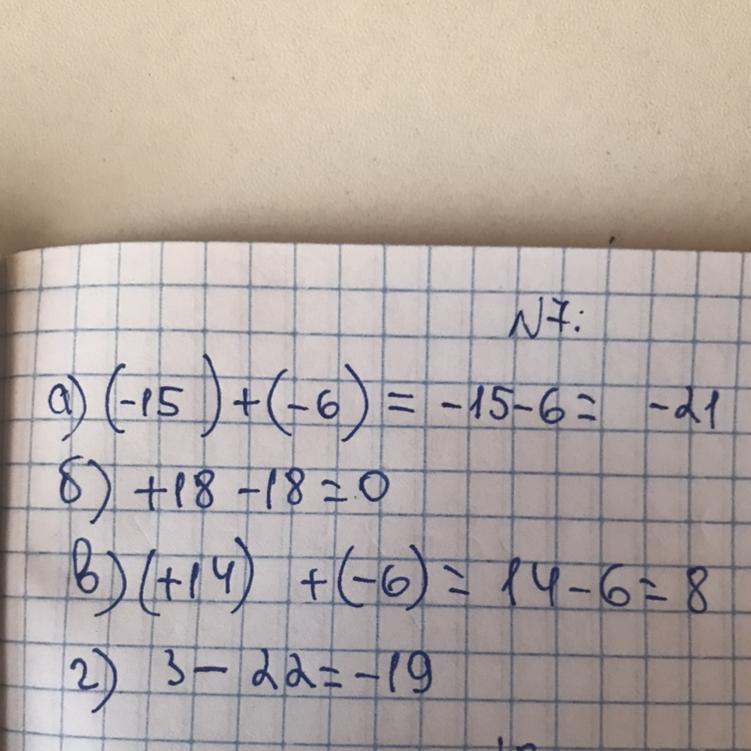 N7:
а) (-15) + (-6) = -15-6 = -21
б) +18 -18 = 0
в) (+14) + (-6) = 14-6 = 8
г) 3 - 22 = -19